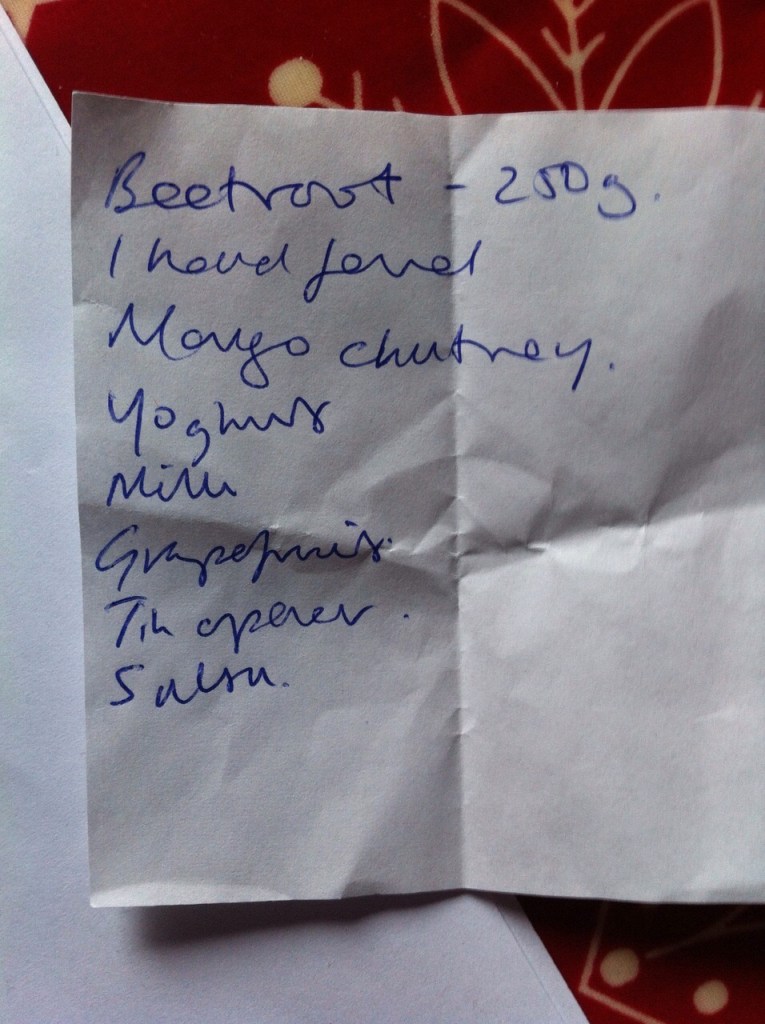 Beetroot - 250g.
1 head fennel
Mango chutney.
Yoghurt
Milk
Grapefruit.
Tin opener.
Salsa.